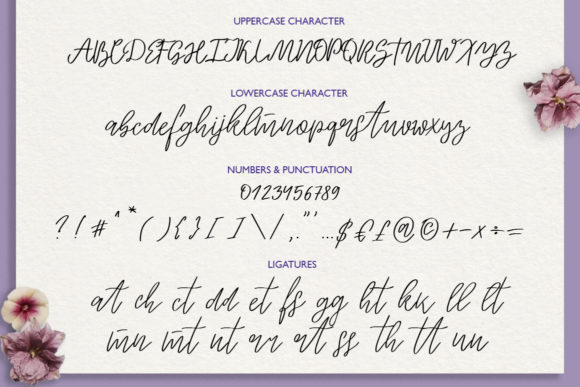 UPPERCASE CHARACTER
ABCDEFGHIJKLMNOPQRSTUVWXYZ
LOWERCASE CHARACTER
abcdefghijklmnopqrstuvwxyz
NUMBERS & PUNCTUATION
0123456789
? ! # ^ * ( ) { } [ ] \ / , . " ' ... $ € £ @ © + - × ÷ =
LIGATURES
at ch ct dd et fs gg ht kk ll lt
mn mt nt rr rt ss th tt un